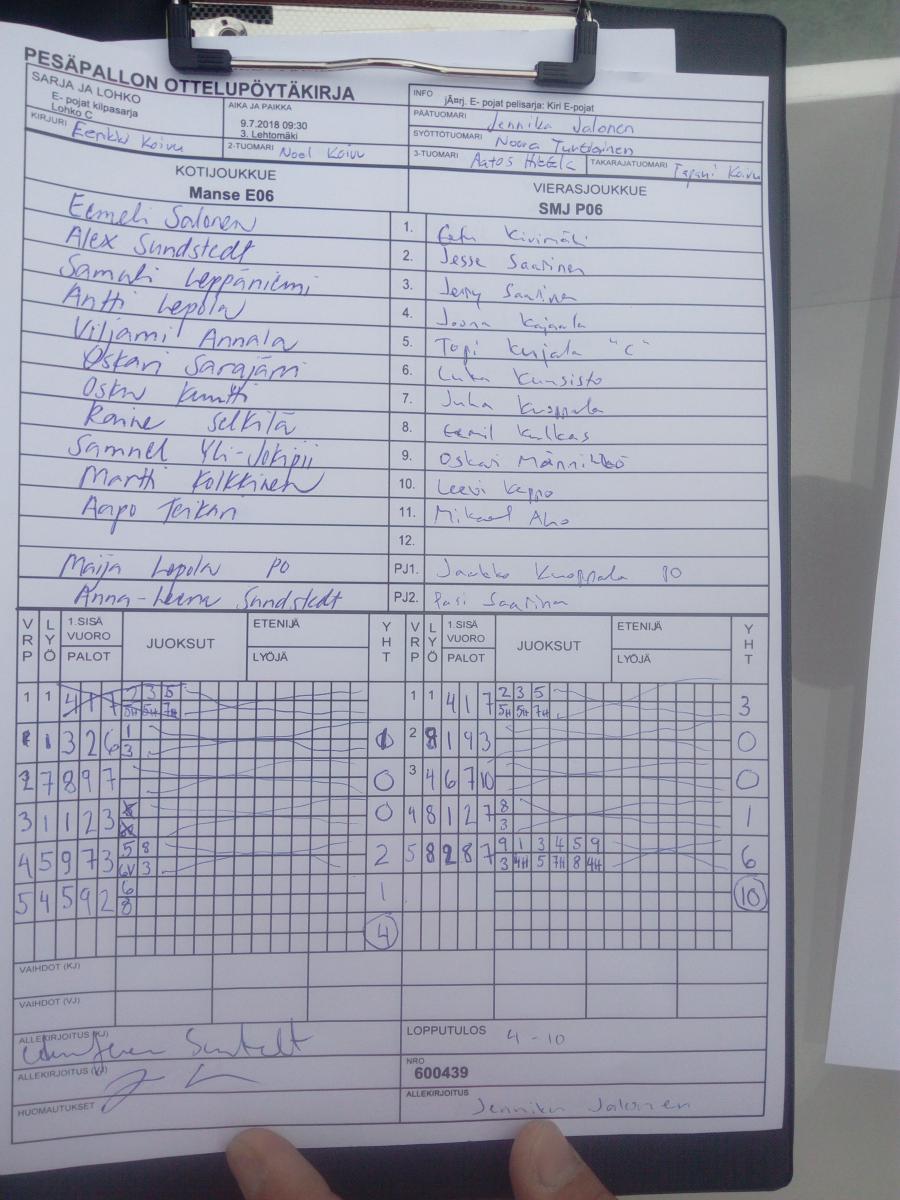 PESÄPALLON OTTELUPÖYTÄKIRJA
SARJA JA LOHKO
E- pojat kilpasarja
Lohko C
AIKA JA PAIKKA
9.7.2018 09:30
3. Lehtomäki
INFO
jÄ¤rj. E- pojat pelisarja: Kiri E-pojat
PÄÄTUOMARI Jennika Jalonen
SYÖTTÖTUOMARI Noora
KIRJURI Koivu
2-TUOMARI Noel Koivu
3-TUOMARI Aatos
TAKARAJATUOMARI Tapani Koivu
KOTIJOUKKUE
Manse E06
VIERASJOUKKUE
SMJ P06
Eemeli Salonen 1. Kivimäki
Alex Sundstedt 2. Jesse Saarinen
Samuli Leppäniemi 3. Jerry Saarinen
Antti Lepola 4. Joona Kajaala
Viljami Annala 5. Topi Kujala "C"
Oskari Sarajärvi 6. Luka Kuusisto
Osku Kuntti 7. Juha Kuoppala
Raine Selkilä 8. Eemil Kulkas
Samuel Yli-Jokipii 9. Oskari Männikkö
Martti Kolkkinen 10. Leevi Keppo
Aapo Teikari 11. Mikael Aho
12.
Maija Lepola PO PJ1. Jaakko Kuoppala PO
Anna-Leena Sundstedt PJ2. Pasi Saarinen
VRP LYÖ 1.SISÄ VUORO PALOT JUOKSUT ETENIJÄ LYÖJÄ YHT VRP LYÖ 1.SISÄ VUORO PALOT JUOKSUT ETENIJÄ LYÖJÄ YHT
1 1 4 1 7 2 3 5 1 1 4 1 7 2 3 5 3
5H 5H 7H 5H 5H 7H
1 3 2 6 1 2 1 9 3 0
3
2 7 8 9 7 0 3 4 6 7 10 0
3 1 1 2 3 0 4 8 1 2 7 8 1
3
4 5 9 7 3 5 8 2 5 8 2 8 7 9 1 3 4 5 9 6
6V 3 3 4H 5 7H 8 4H
5 4 5 9 2 6 1 10
8
4
VAIHDOT (KJ)
VAIHDOT (VJ)
ALLEKIRJOITUS (KJ)
LOPPUTULOS 4 - 10
ALLEKIRJOITUS (VJ)
NRO
600439
HUOMAUTUKSET
ALLEKIRJOITUS Jennika Jalonen